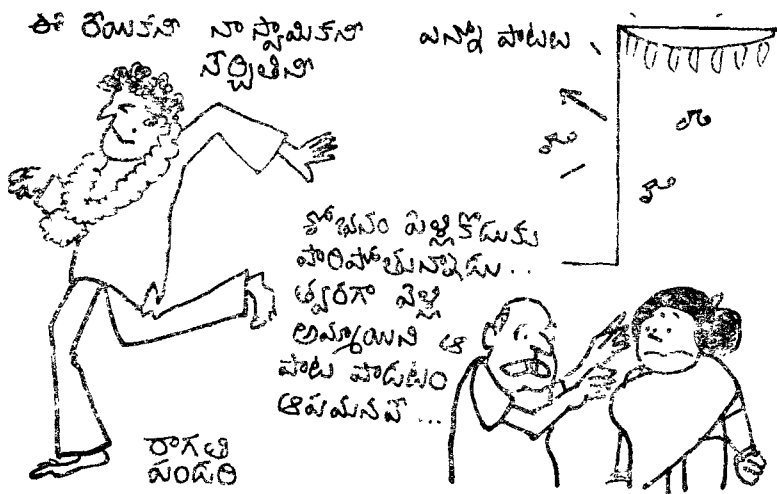 ఈ రేయికనీ నా స్వామికనీ ఎన్నో పాటలు
నేర్చితినీ
శోభనం పెళ్లికొడుకు
పారిపోతున్నాడు..
త్వరగా వెళ్లి
అమ్మాయిని ఆ
పాట పాడటం
ఆపమనవే...
రాగతి
పండరి